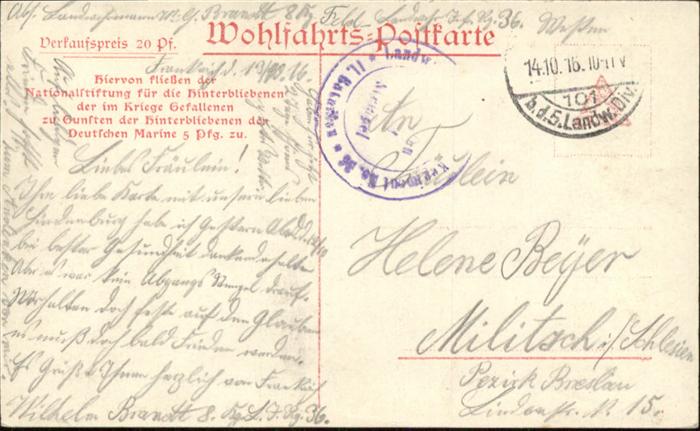 Abs. Landwehrmann W. Brandt 8 Kp. Landw. I. R. 36. Westen
Wohlfahrts-Postkarte
Verkaufspreis 20 Pf.
Hiervon fließen der
Nationalstiftung für die Hinterbliebenen
der im Kriege Gefallenen
zu Gunsten der Hinterbliebenen der
Deutschen Marine 5 Pfg. zu.
Frankreich d. 13/10. 16.
Liebes Fräulein!
Ihre liebe Karte mit unsern lieben
Hindenburg habe ich Gestern Abd. 12/10
bei bester Gesundheit dankend erhalten
Aber es war kein Abgangs Stempel drauf.
Wir halten doch feste auf den Glauben
es muß doch bald Frieden werden.
Es Grüßt Ihnen herzlich von Frankreich
Wilhelm Brandt 8. Kp. L. I. Rg. 36.
II. Bataillon
Landw.
No. 36
14.10.16.10-11V
101
b.d.5.Landw.Div.
An
Fräulein
Helene Beyer
Militsch i/Schlesien
Bezirk Breslau
Lindenstr. N. 15.